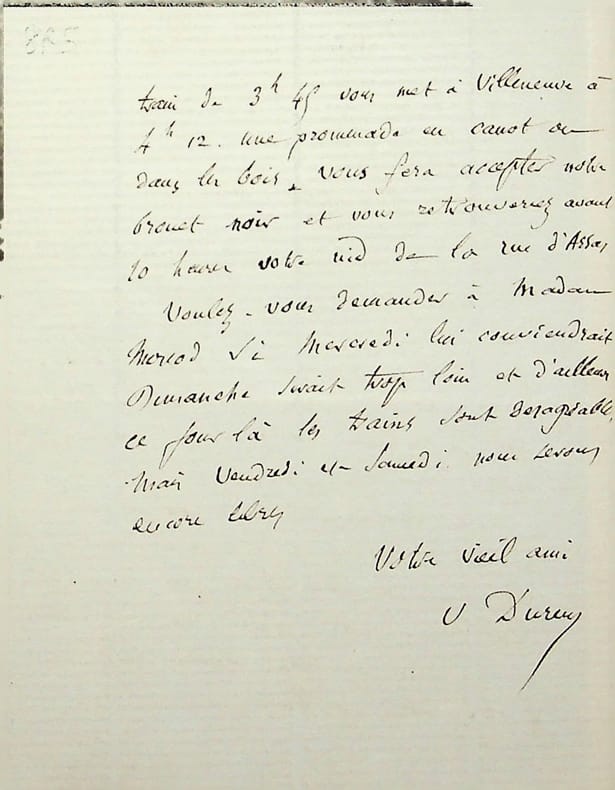 train de 3h 45 vous met à Villeneuve à
4h 12. une promenade en canot ou
dans les bois vous fera accepter notre
brouet noir et vous retrouverez avant
10 heures votre nid de la rue d'Assas
Voulez-vous demander à Madame
si Mercredi lui conviendrait
Dimanche serait trop loin et d'ailleurs
ce jour là les trains sont desagréables,
Mais Vendredi et Samedi nous serons
encore libres
Votre vieil ami
V Duruy